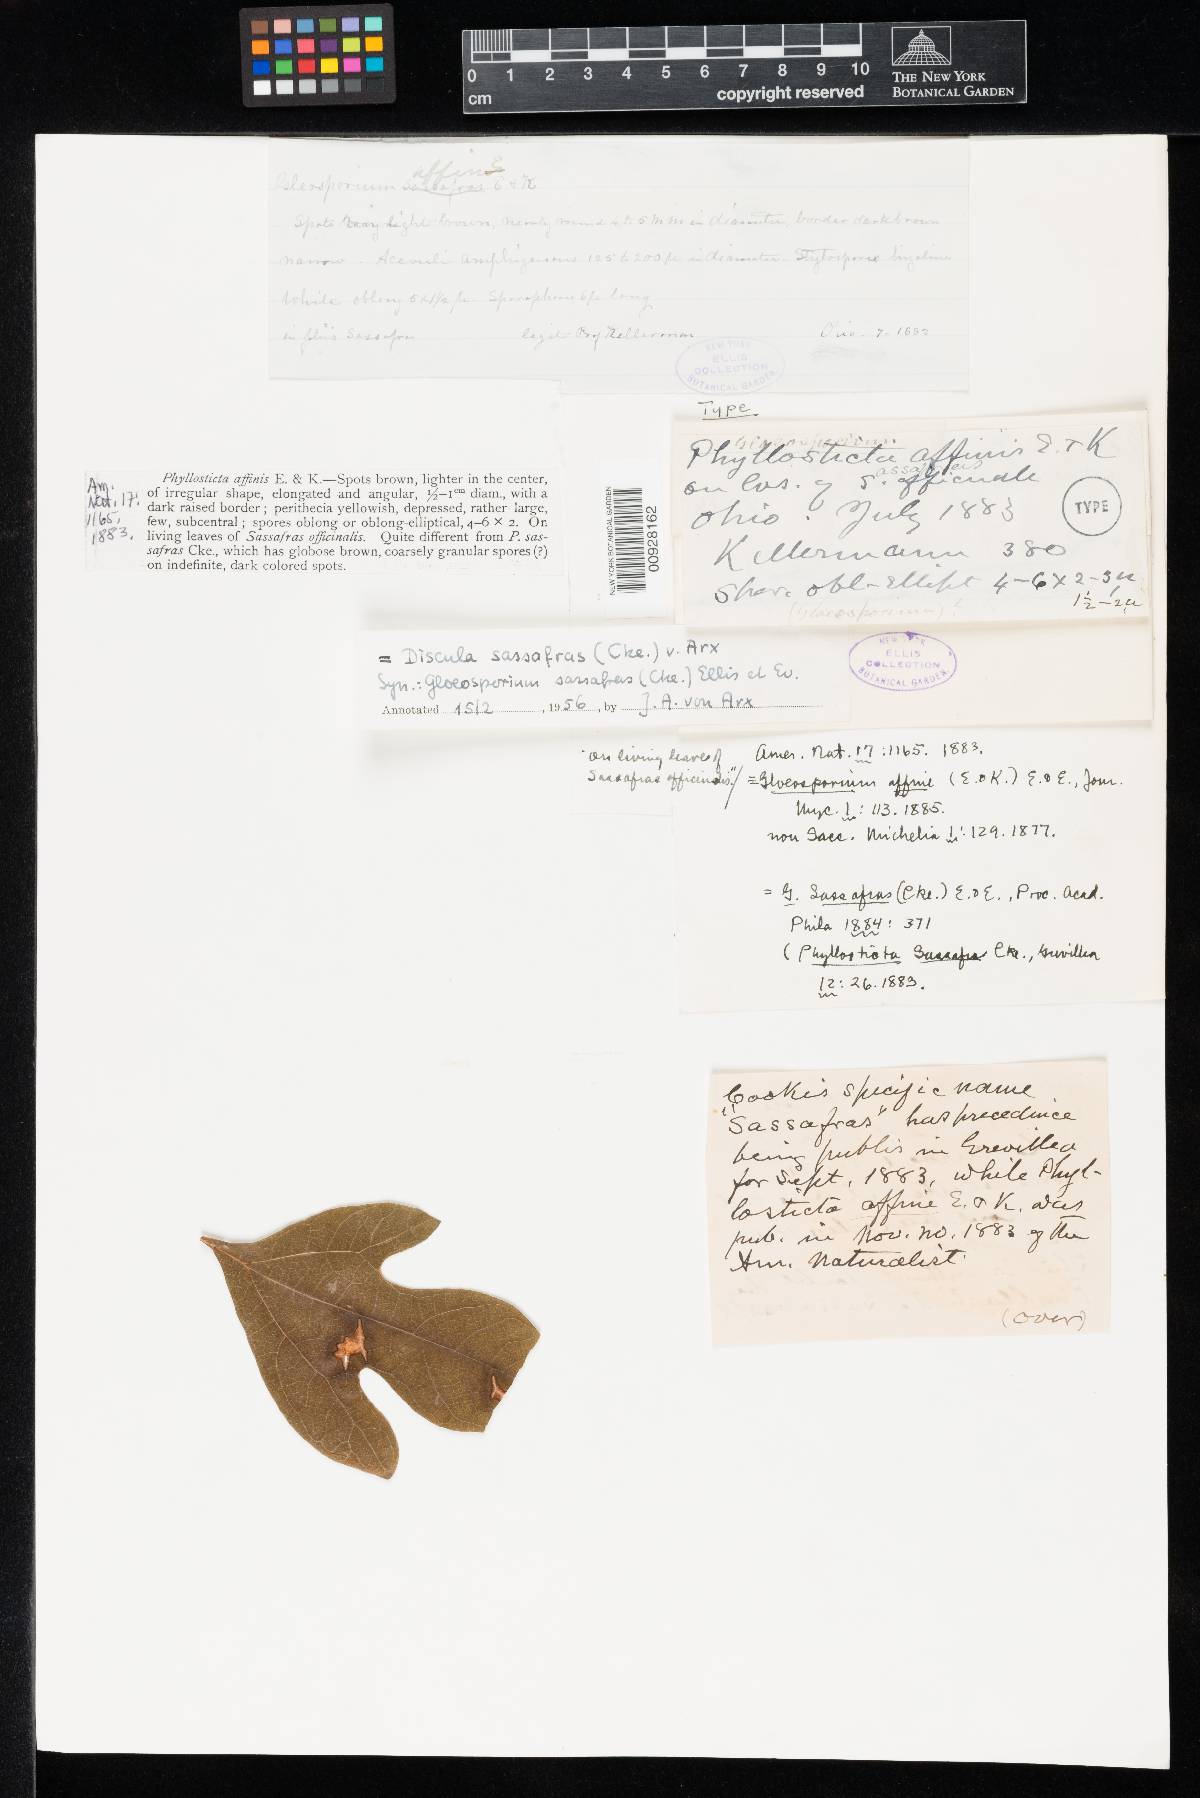 0 1 2 3 4 5 6 7 8 9 10
cm
copyright reserved
THE NEW YORK
BOTANICAL GARDEN
affine
Gleosporium Sassafras E & K
Spots light brown, nearly round 4 to 5 mm in diameter, border dark brown
narrow. Acervuli amphigenous 125 to 200 µ in diameter. Stylospores hyaline
White oblong
long
Sassafras legit Prof Kellerman Ohio. 7-1883
NEW YORK
ELLIS
COLLECTION
BOTANICAL GARDEN
Type
Gloeosporium
Phyllosticta affinis E. & K
on lvs. of S. officinale
assafras
Ohio. July 1883
Kellermann 380
Spor. obl-ellipt 4-6 x 2-3 µ
1½-2µ
(Gloeosporium)?
TYPE
Am.
Nat. 17:
1165,
1883.
Phyllosticta affinis E. & K.—Spots brown, lighter in the center,
of irregular shape, elongated and angular, ½–1cm diam., with a
dark raised border; perithecia yellowish, depressed, rather large,
few, subcentral; spores oblong or oblong-elliptical, 4–6 × 2. On
living leaves of Sassafras officinalis. Quite different from P. sas-
safras Cke., which has globose brown, coarsely granular spores (?)
on indefinite, dark colored spots.
NEW YORK BOTANICAL GARDEN
00928162
= Discula sassafras (Cke.) v. Arx
Syn.: Gloeosporium sassafras (Cke.) Ellis et Ev.
Annotated 15/2, 1956, by J. A. von Arx
NEW YORK
ELLIS
COLLECTION
BOTANICAL GARDEN
"on living leaves of
Sassafras officinalis."/
Amer. Nat. 17:1165. 1883.
= Gloeosporium affine (E. & K.) E. & E., Jour.
Myc. 1: 113. 1885.
non Sacc. Michelia 1:129. 1877.
= G. Sassafras (Cke.) E. & E., Proc. Acad.
Phila 1884: 371
(Phyllosticta Sassafras Cke., Grevillea
12: 26. 1883.
Cooke's specific name
"Sassafras" has precedence
being publis in Grevillea
for Sept, 1883, while Phyl-
losticta affine E. & K. was
pub. in Nov. no. 1883 of the
Am. Naturalist.
(over)